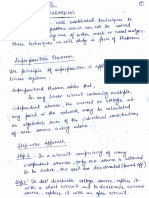 THEOREMS
well established techniques to
which can not be solved
use of either mesh or nodal analysis.
these techniques we will study in form of theorems
Superposition Theorem
The principle of superposition is applicable only
Linear Systems
Superposition theorem states that,
In any linear circuit containing multiple
independent sources the current or voltage at
any point in the network may be calculated
as algebraic sum of the individual contributions of
each source acting alone.
Step wise approach
Step 1 - In a circuit comprising of many
independent sources, only one source is allowed to
the circuit, the rest are deactivated (turned off)
Step 2 - To deactivate voltage source, replace it
with a short circuit and to deactivate current
source, replace it with an open circuit